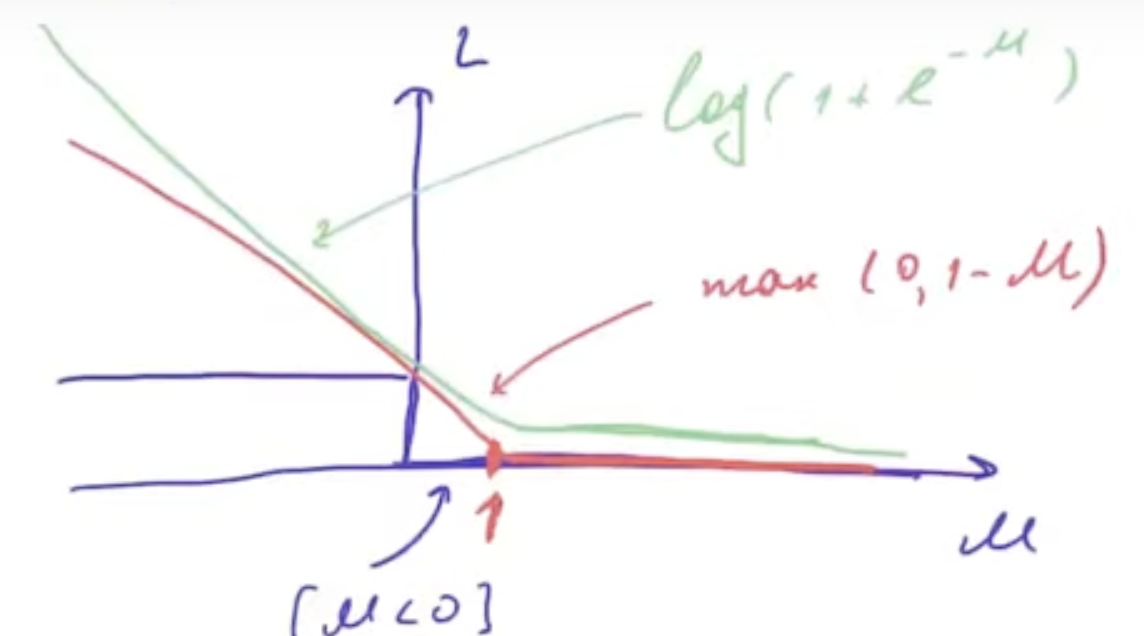 L
log(1 + e^{-M})
max (0, 1 - M)
1
M
[M < 0]